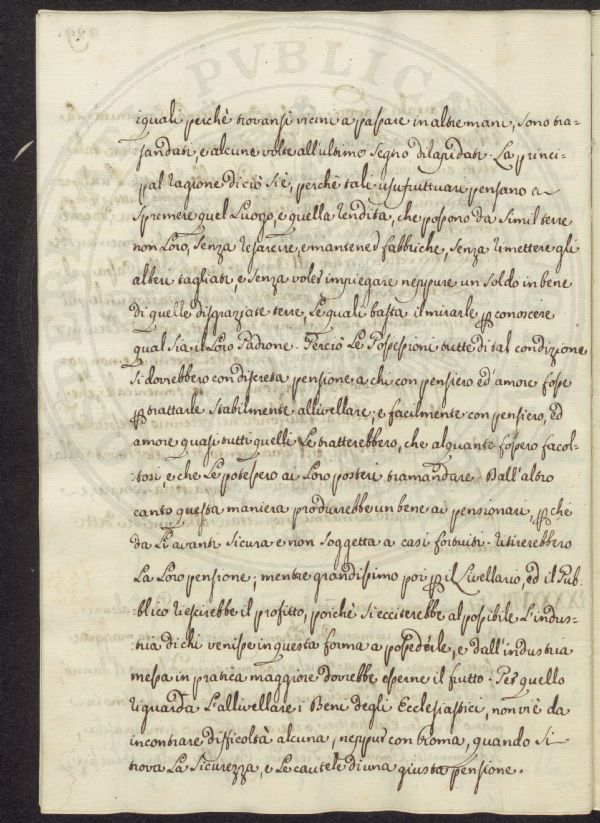 iquali perchè trovansi vicini a passare in altre mani, sono tra=
:sandati, e alcune volte all'ultimo segno dilapidati. La princi=
pal ragione di ciò si è, perchè tali usufruttuari pensano a
spremere quel Luogo, e quella rendita, che possono da simil terre
non Loro, senza resarcire, e mantener fabbriche, senza rimettere gli
alberi tagliati, e senza voler impiegare neppure un soldo in bene
di quelle disgraziate terre, Le quali basta il mirarle p conoscere
qual sia il Loro Padrone. Perciò Le Possessioni tutte di tal condizione
si dovrebbero con discreta pensione a chi con pensiero ed' amore fosse
p trattarle stabilmente allivellare; e facilmente con pensiero, ed
amore quasi tutti quelli Le tratterebbero, che alquanto fossero facol=
:tosi e che Le potessero ai Loro posteri tramandare. Dall'altro
canto questa maniera produrrebbe un bene ai pensionari, pchè
da lì avanti sicura e non soggetta a casi fortuiti ritirerebbero
La Loro pensione; mentre grandissimo poi p il Livellario, ed il Pub=
blico riescirebbe il profitto, poichè si ecciterebbe al possibile L'indus=
tria di chi venisse in questa forma a possederle, e dall'industria
messa in pratica maggiore dovrebbe esserne il frutto. Per quello
riguarda L'allivellare i Beni degli Ecclesiastici, non vi è da
incontrare difficoltà alcuna, neppur con Roma, quando si
trova La sicurezza, e Le cautele di una giusta pensione.